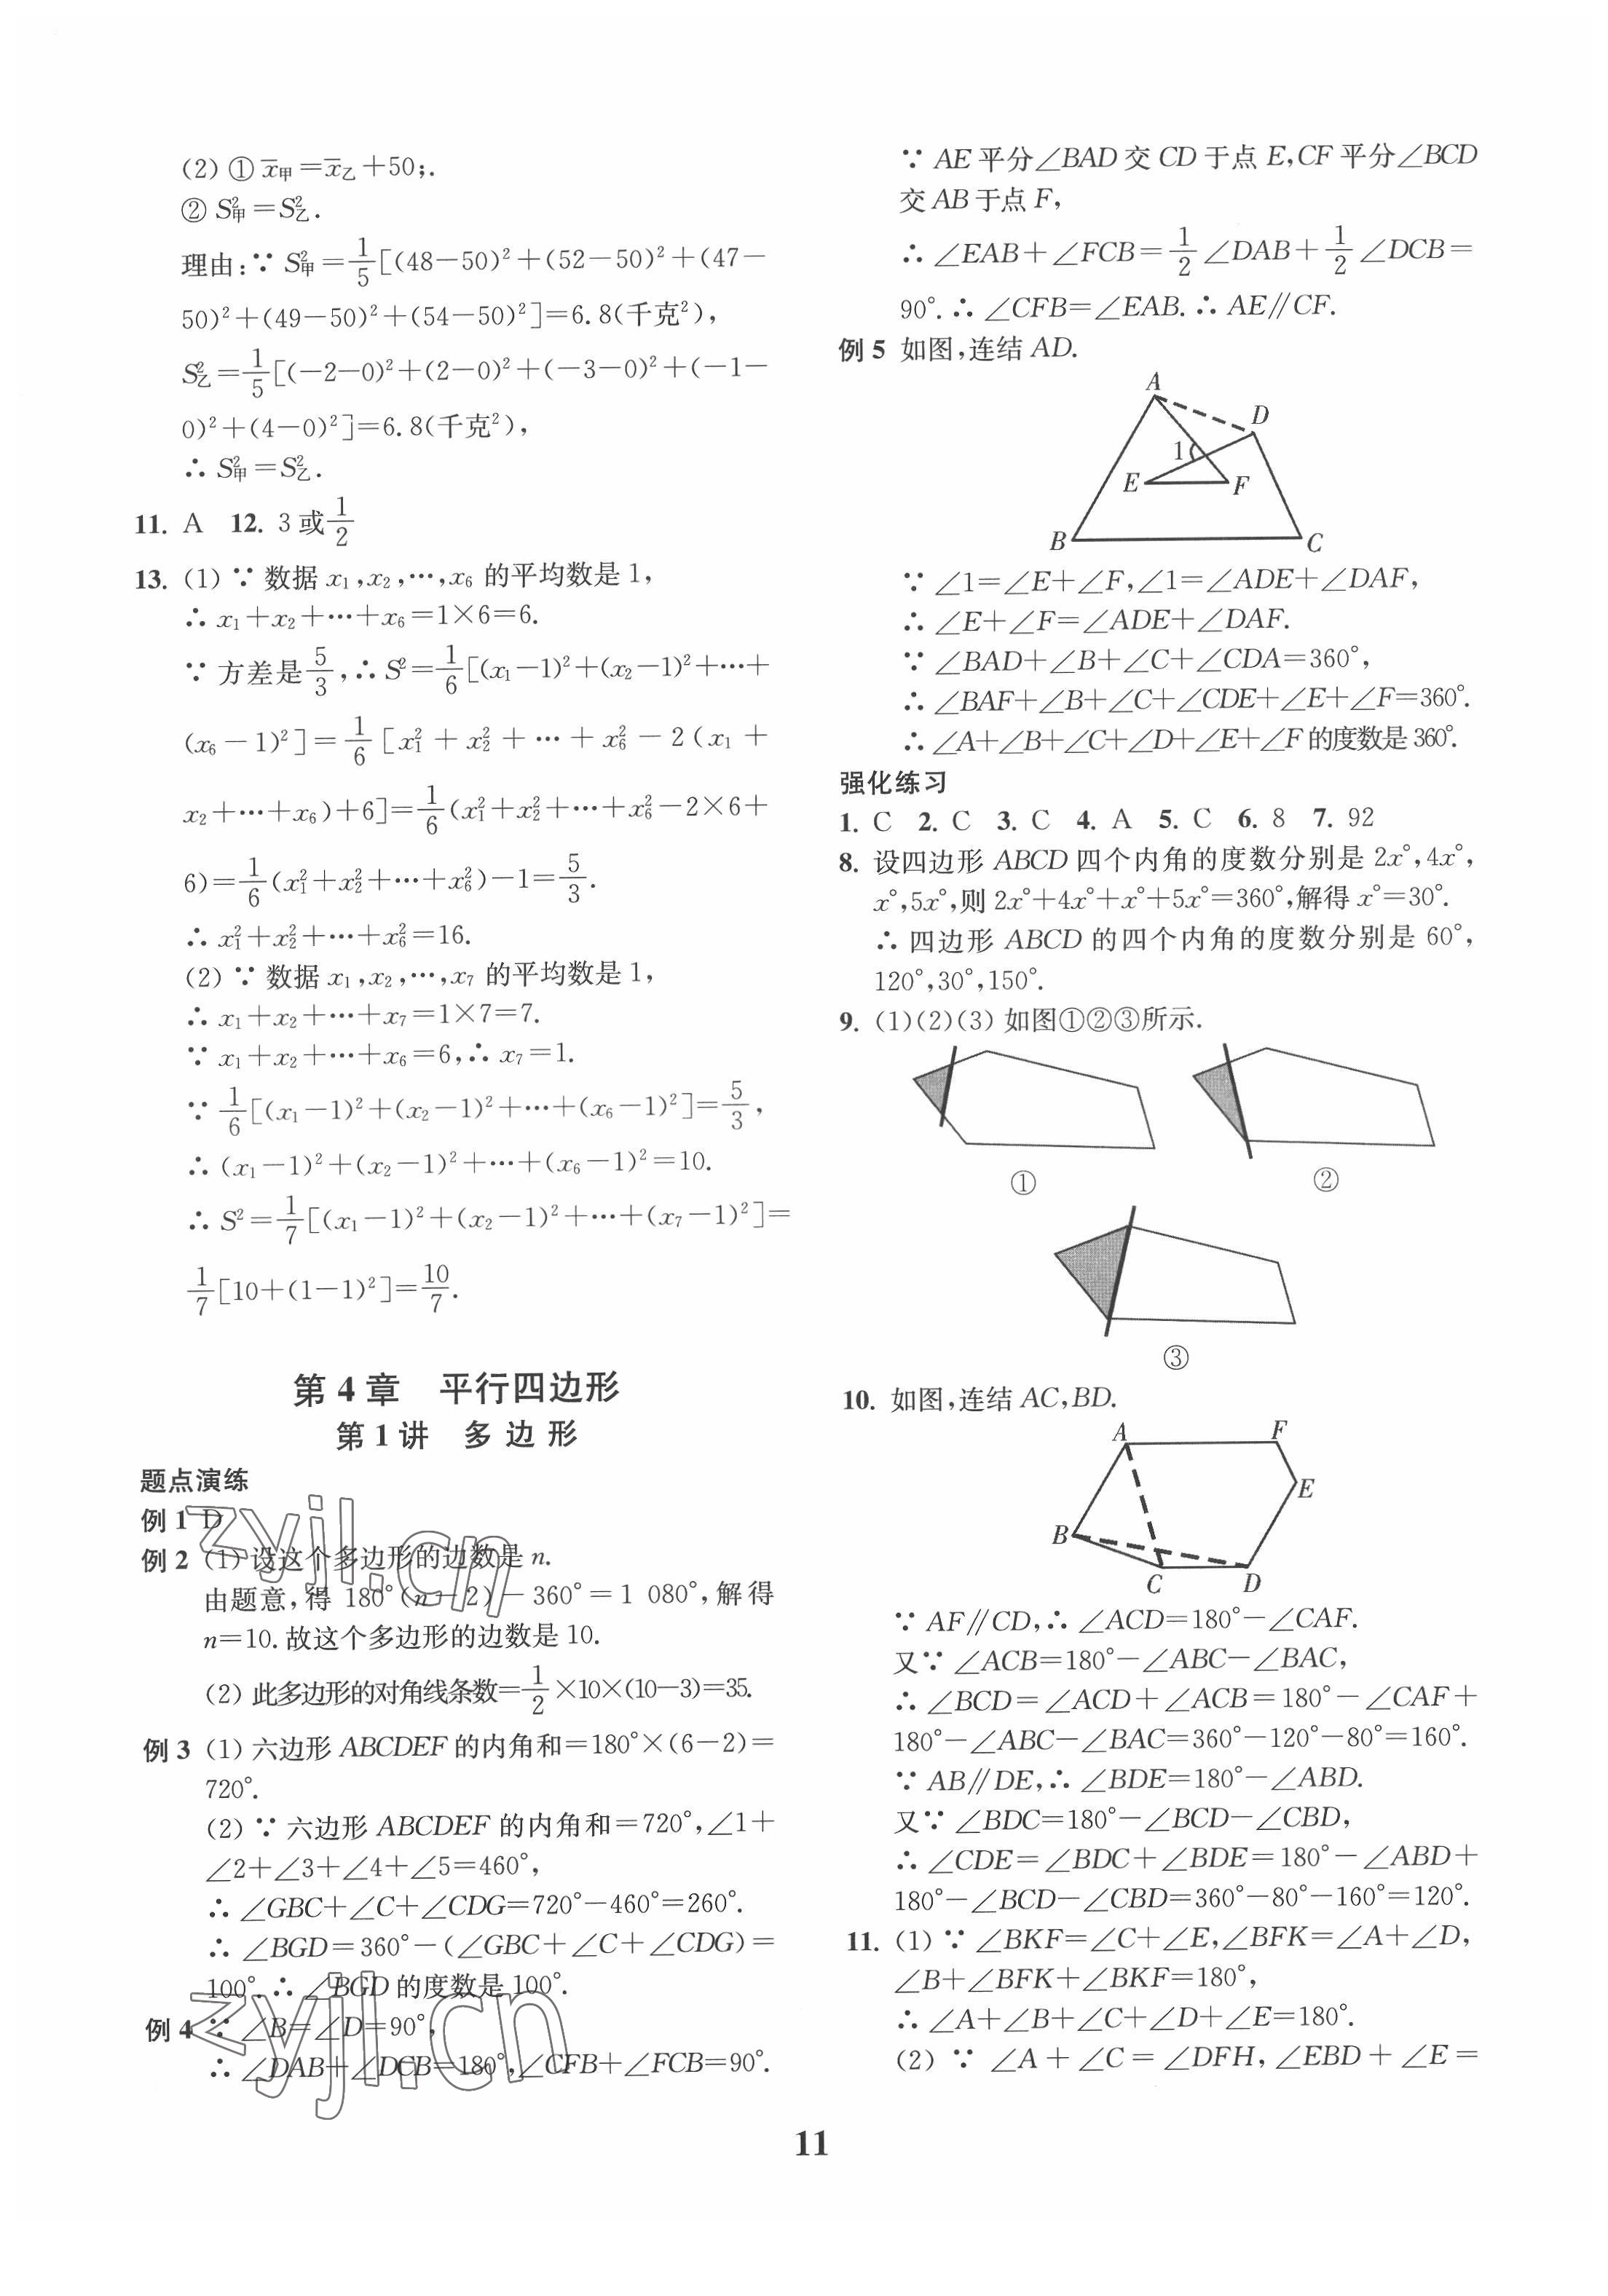 (2) ① x̅甲=x̅乙+50;.
② S²甲=S²乙.
理由:∵ S²甲=1/5[(48-50)²+(52-50)²+(47-
50)²+(49-50)²+(54-50)²]=6.8(千克²),
S²乙=1/5[(-2-0)²+(2-0)²+(-3-0)²+(-1-
0)²+(4-0)²]=6.8(千克²),
∴ S²甲=S²乙.
11. A 12. 3或1/2
13. (1) ∵ 数据 x₁,x₂,…,x₆ 的平均数是1,
∴ x₁+x₂+…+x₆=1×6=6.
∵ 方差是5/3,∴ S²=1/6[(x₁-1)²+(x₂-1)²+…+
(x₆-1)²]=1/6[x₁²+x₂²+…+x₆²-2(x₁+
x₂+…+x₆)+6]=1/6(x₁²+x₂²+…+x₆²-2×6+
6)=1/6(x₁²+x₂²+…+x₆²)-1=5/3.
∴ x₁²+x₂²+…+x₆²=16.
(2) ∵ 数据 x₁,x₂,…,x₇ 的平均数是1,
∴ x₁+x₂+…+x₇=1×7=7.
∵ x₁+x₂+…+x₆=6,∴ x₇=1.
∵ 1/6[(x₁-1)²+(x₂-1)²+…+(x₆-1)²]=5/3,
∴ (x₁-1)²+(x₂-1)²+…+(x₆-1)²=10.
∴ S²=1/7[(x₁-1)²+(x₂-1)²+…+(x₇-1)²]=
1/7[10+(1-1)²]=10/7.
第4章 平行四边形
第1讲 多边形
题点演练
例1 D
例2 (1) 设这个多边形的边数是 n.
由题意,得 180°(n-2)-360°=1 080°,解得
n=10.故这个多边形的边数是10.
(2) 此多边形的对角线条数=1/2×10×(10-3)=35.
例3 (1) 六边形 ABCDEF 的内角和=180°×(6-2)=
720°.
(2) ∵ 六边形 ABCDEF 的内角和=720°,∠1+
∠2+∠3+∠4+∠5=460°,
∴ ∠GBC+∠C+∠CDG=720°-460°=260°.
∴ ∠BGD=360°-(∠GBC+∠C+∠CDG)=
100°.∴ ∠BGD 的度数是100°.
例4 ∵ ∠B=∠D=90°,
∴ ∠DAB+∠DCB=180°,∠CFB+∠FCB=90°.
zyjl.cn
zyjl.cn
∵ AE 平分∠BAD 交 CD 于点 E,CF 平分∠BCD
交 AB 于点 F,
∴ ∠EAB+∠FCB=1/2∠DAB+1/2∠DCB=
90°.∴ ∠CFB=∠EAB.∴ AE∥CF.
例5 如图,连结 AD.
A
D
1
E
F
B
C
∵ ∠1=∠E+∠F,∠1=∠ADE+∠DAF,
∴ ∠E+∠F=∠ADE+∠DAF.
∵ ∠BAD+∠B+∠C+∠CDA=360°,
∴ ∠BAF+∠B+∠C+∠CDE+∠E+∠F=360°.
∴ ∠A+∠B+∠C+∠D+∠E+∠F的度数是360°.
强化练习
1. C 2. C 3. C 4. A 5. C 6. 8 7. 92
8. 设四边形 ABCD 四个内角的度数分别是 2x°,4x°,
x°,5x°,则 2x°+4x°+x°+5x°=360°,解得 x°=30°.
∴ 四边形 ABCD 的四个内角的度数分别是 60°,
120°,30°,150°.
9. (1)(2)(3) 如图①②③所示.
① ②
③
10. 如图,连结 AC,BD.
A F
E
B
C D
∵ AF∥CD,∴ ∠ACD=180°-∠CAF.
又∵ ∠ACB=180°-∠ABC-∠BAC,
∴ ∠BCD=∠ACD+∠ACB=180°-∠CAF+
180°-∠ABC-∠BAC=360°-120°-80°=160°.
∵ AB∥DE,∴ ∠BDE=180°-∠ABD.
又∵ ∠BDC=180°-∠BCD-∠CBD,
∴ ∠CDE=∠BDC+∠BDE=180°-∠ABD+
180°-∠BCD-∠CBD=360°-80°-160°=120°.
11. (1) ∵ ∠BKF=∠C+∠E,∠BFK=∠A+∠D,
∠B+∠BFK+∠BKF=180°,
∴ ∠A+∠B+∠C+∠D+∠E=180°.
(2) ∵ ∠A+∠C=∠DFH,∠EBD+∠E=
11